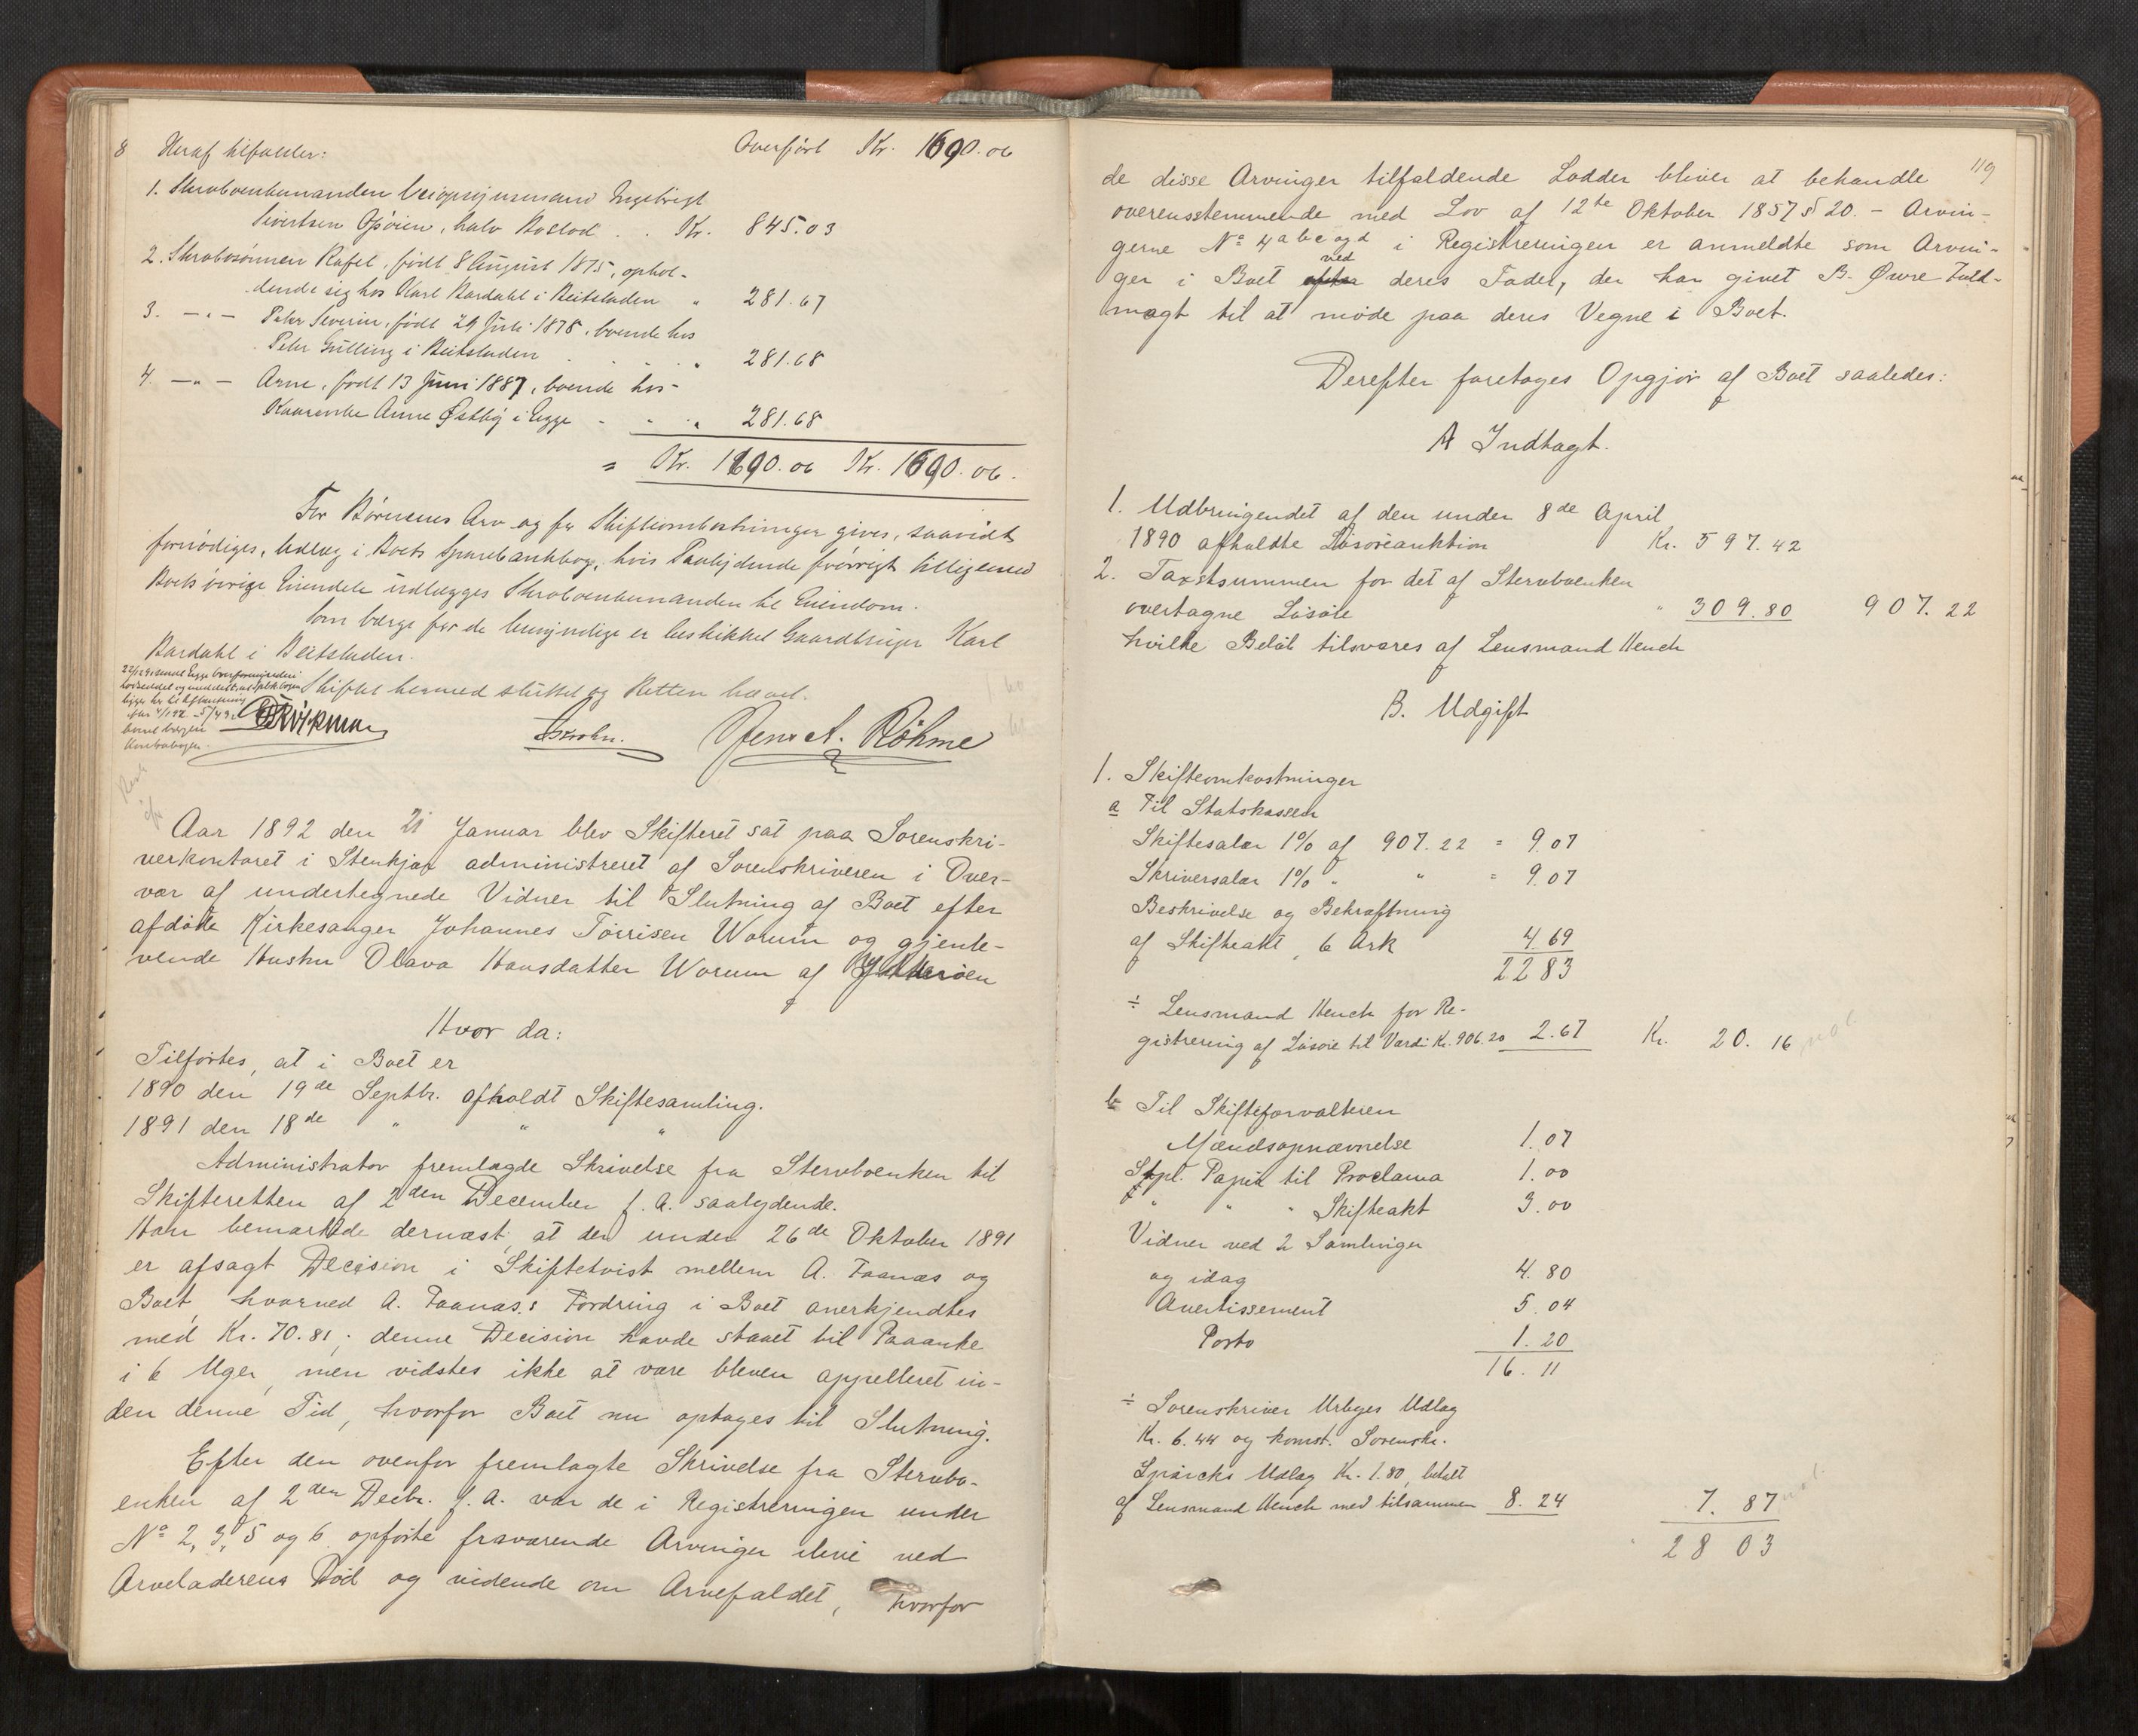 8 Heraf tilfalder: Overført Kr. 1690.06
1. Stervboenkemanden Veiopsynsmand Ingebrigt
Sivertsen Opøien, halv Boslod . . Kr. 845.03
2. Stervbosønnen Rafel, født 8 August 1875, ophol-
dende sig hos Karl Bardahl i Beitstaden " 281.67
3. — " — Peter Severin, født 29 Juli 1878, boende hos
Peter Gulling i Beitstaden . . . " 281.68
4. — " — Arne, født 13 Juni 1887, boende hos
Anne Østby i Egge - " " 281.68
= Kr. 1690.06 Kr. 1690.06.
For Børnenes Arv og for Skifteomkostninger gives, saavidt
fornødiges, Udlæg i Boets Sparebankbog, hvis Paalydende forøvrigt tilligemed
Boets øvrige Eiendele udlægges Stervboenkemanden til Eiendom.
Som Værge for de umyndige er beskikket Gaardbruger Karl
Bardahl i Beitstaden.
Skiftet hermed sluttet og Retten hævet.
Jens A. Röhme
Aar 1892 den 21 Januar blev Skifteret sat paa Sorenskri-
verkontoret i Stenkjær administreret af Sorenskriveren i Over-
vær af undertegnede Vidner til Slutning af Boet efter
afdøde Kirkesanger Johannes Tørrisen Worum og gjenle-
vende Hustru Olava Hansdatter Worum af Ytterøen
Hvor da:
Tilførtes, at i Boet er
1890 den 19de Septbr. afholdt Skiftesamling.
1891 den 18de " " "
Administrator fremlagde Skrivelse fra Stervboenken til
Skifteretten af 2den December f. A. saalydende.
Han bemærkede dernæst, at der under 26de Oktober 1891
er afsagt Decision i Skiftetvist mellem A. Faanæs og
Boet, hvorved A. Faanæs.s Fordring i Boet anerkjendtes
med Kr. 70.81; denne Decision havde staaet til Paaanke
i 6 Uger, men vidstes ikke at være bleven appelleret in-
den denne Tid, hvorfor Boet nu optages til Slutning.
Efter den ovenfor fremlagte Skrivelse fra Stervbo-
enken af 2den Decbr. f. A. var de i Registreringen under
No 2, 3, 5 og 6 opførte fraværende Arvinger ilive ved
Arveladerens Død og vidende om Arvefaldet, hvorfor
119
de disse Arvinger tilfaldende Lodder bliver at behandle
overensstemmende med Lov af 12te Oktober 1857 § 20. - Arvin-
gerne No 4 a b c og d i Registreringen er anmeldte som Arvin-
ger i Boet efter ved deres Fader, der har givet B. Øvre Fuld-
magt til at møde paa deres Vegne i Boet.
Derefter foretages Opgjør af Boet saaledes:
A Indtægt.
1. Udbringendet af den under 8de April
1890 afholdte Løsøreauktion Kr. 597.42
2. Taxtsummen for det af Stervboenken
overtagne Løsøre " 309.80 907.22
hvilke Beløb tilsvares af Lensmand Hench
B. Udgift
1. Skifteomkostninger
a Til Statskassen
Skiftesalær 1% af 907.22 = 9.07
Skriversalær 1% " " = 9.07
Beskrivelse og Bekræftning
af Skifteakt, 6 Ark 4.69
22 83
÷ Lensmand Hench for Re-
gistrering af Løsøre til Værdi Kr. 906.20 2.67 Kr. 20.16
b Til Skifteforvalteren
Mændsopnævnelse 1.07
Stpl. Papir til Proclama 1.00
" " " Skifteakt 3.00
Vidner ved 2 Samlinger
og idag 4.80
Avertissement 5.04
Porto 1.20
16.11
÷ Sorenskriver Urbyes Udlæg
Kr. 6.44 og konst. Sorenskr.
Spørcks Udlæg Kr. 1.80, betalt
af Lensmand Hench med tilsammen 8.24 7.87
28 03